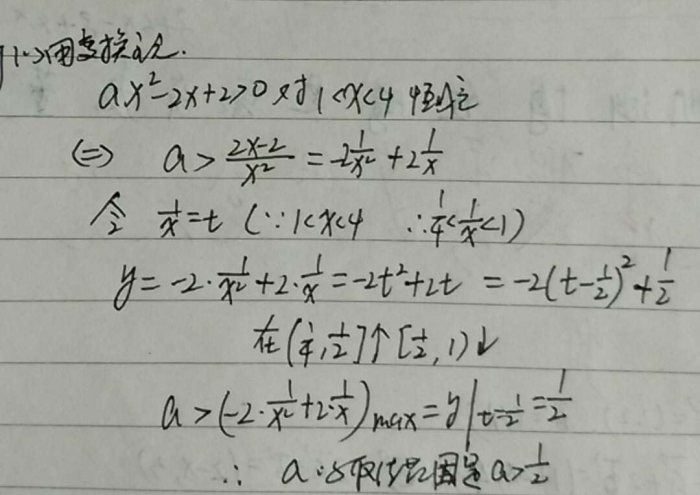 用变换法.
ax²-2x+2>0 对 1<x<4 恒成立
⇔ a > \frac{2x-2}{x²} = -2\frac{1}{x²} + 2\frac{1}{x}
令 \frac{1}{x} = t (∵ 1<x<4 ∴ \frac{1}{4} < \frac{1}{x} < 1)
y = -2·\frac{1}{x²} + 2·\frac{1}{x} = -2t² + 2t = -2(t-\frac{1}{2})² + \frac{1}{2}
在 (\frac{1}{4}, \frac{1}{2}]↑ [\frac{1}{2}, 1)↓
a > (-2·\frac{1}{x²} + 2·\frac{1}{x})max = y|t=\frac{1}{2} = \frac{1}{2}
∴ a的取值范围是 a>\frac{1}{2}